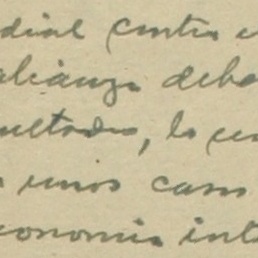 dial contra e
alianza deba
sultados, la cu
unos casos
conomia int